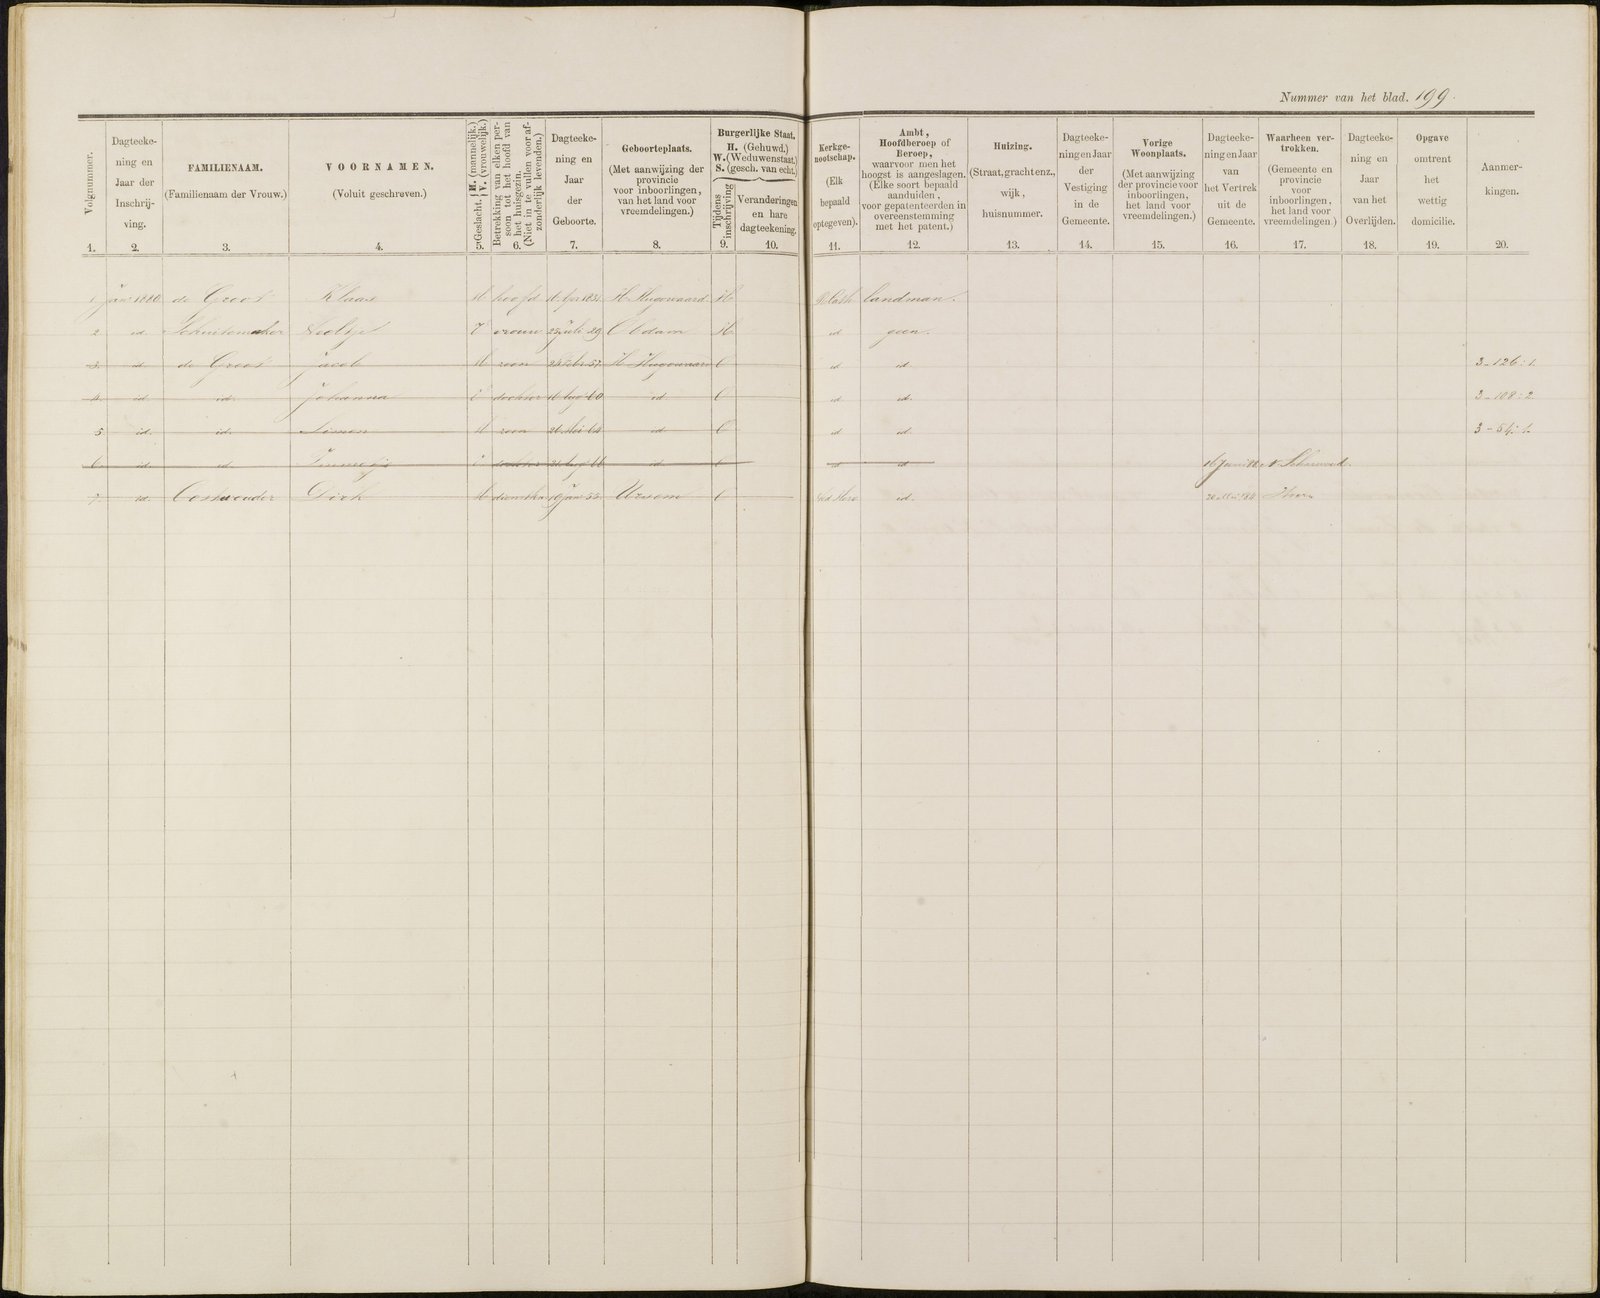 Nummer van het blad. 199.
Volgnummer.
1.
Dagteeke-
ning en
Jaar der
Inschrij-
ving.
2.
FAMILIENAAM.
(Familienaam der Vrouw.)
3.
VOORNAMEN.
(Voluit geschreven.)
4.
Geslacht. { M. (mannelijk.) V. (vrouwelijk.)
5.
Betrekking van elken per-
soon tot het hoofd van
het huisgezin.
(Niet in te vullen voor af-
zonderlijk levenden.)
6.
Dagteeke-
ning en
Jaar
der
Geboorte.
7.
Geboorteplaats.
(Met aanwijzing der
provincie
voor inboorlingen,
van het land voor
vreemdelingen.)
8.
Burgerlijke Staat.
H. (Gehuwd.)
W. (Weduwenstaat.)
S. (gesch. van echt.)
Tijdens
inschrijving
9.
Veranderingen
en hare
dagteekening.
10.
Kerkge-
nootschap.
(Elk
bepaald
optegeven).
11.
Ambt,
Hoofdberoep of
Beroep,
waarvoor men het
hoogst is aangeslagen.
(Elke soort bepaald
aanduiden,
voor gepatenteerden in
overeenstemming
met het patent.)
12.
Huizing.
(Straat, gracht enz.,
wijk,
huisnummer.
13.
Dagteeke-
ning en Jaar
der
Vestiging
in de
Gemeente.
14.
Vorige
Woonplaats.
(Met aanwijzing
der provincie voor
inboorlingen,
het land voor
vreemdelingen.)
15.
Dagteeke-
ning en Jaar
van
het Vertrek
uit de
Gemeente.
16.
Waarheen ver-
trokken.
(Gemeente en
provincie
voor
inboorlingen,
het land voor
vreemdelingen.)
17.
Dagteeke-
ning en
Jaar
van het
Overlijden.
18.
Opgave
omtrent
het
wettig
domicilie.
19.
Aanmer-
kingen.
20.
1 Jan 1880 de Groot Klaas M hoofd H. Hugowaard H R. Cath landman.
2 id. Schuitemaker Neeltje V vrouw 29 Obdam H id geen.
3. id. de Groot Jacob M zoon 57 H. Hugowaard O id id. 3-126:1.
4. id id. Johanna V dochter 60 id O id id. 3-108:2.
5 id. id. Simon M zoon 21 Mei 64 id O id id. 3-54:1.
6. id. id V dochter id O id id 16 Juni
7. id. Oosthouder Dirk M 19 Jan 53 Ursem O id.